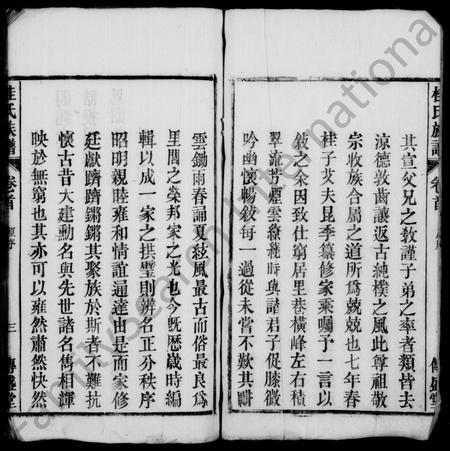 桂氏族譜
卷首
傳盛堂
其宣父兄之敎謹子弟之率者類皆去
涼德敦齒讓返古純樸之風此尊祖敬
宗收族合屬之道所爲兢兢也七年春
桂子艾夫昆季纂修家乘囑予一言以
敘之余因致仕窮居里巷橫峰左右積
翠流芳煙雲繚繞時與諸君子促膝微
吟幽懷暢敘每一過從未嘗不歎其耕
雲鋤雨春誦夏絃風最古而俗最良爲
里閭之榮邦家之光也今旣歷歲時編
輯以成一家之拱璧則辨名正分秩序
昭明親睦雍和情誼通達由是而家修
廷獻躋躋鏘鏘其聚族於斯者不難抗
懷古昔大建勳名與先世諸名雋相輝
映於無窮也其亦可以雍然肅然快然
桂氏族譜
卷首
三
傳盛堂
FamilySearch International